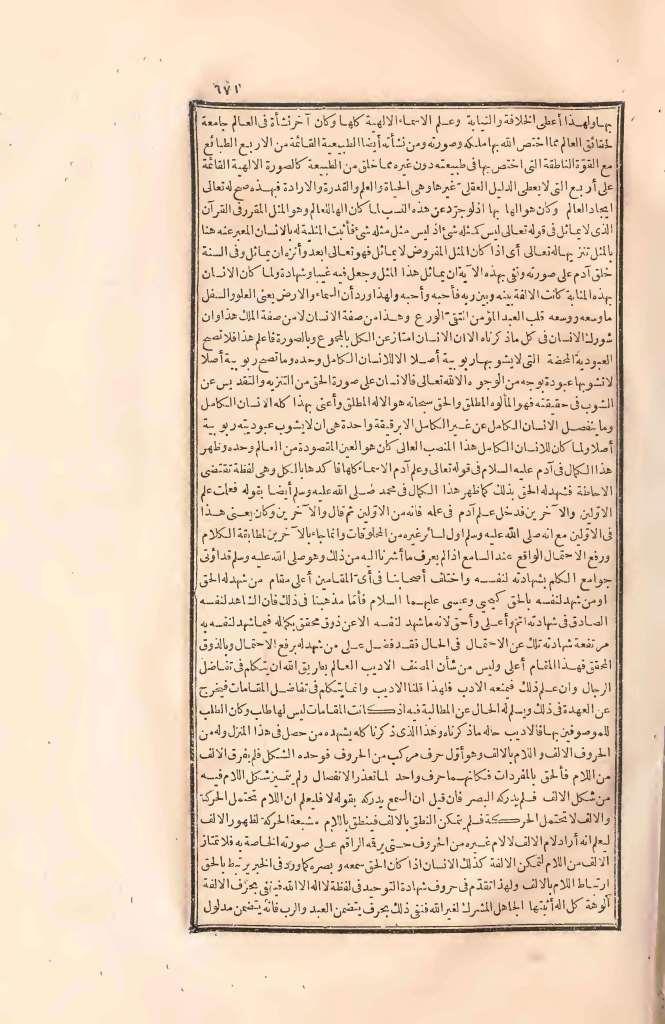 ٦٧١
بها ولهذا أعطى الخلافة والنيابة وعلم الاسماء الالهية كلها وكان آخر نشأة فى العالم جامعة
لحقائق العالم مما اختص الله بها ملكه وصورته ومن نشأته أيضا الطبيعية القائمة من الاربع الطبائع
مع القوة الناطقة التى اختص بها فى طبيعته دون غيره مما خلق من الطبيعة كالصورة الالهية القائمة
على أربع التى لا يعطى الدليل العقلى غيرها وهى الحياة والعلم والقدرة والارادة فبهذه صح له تعالى
ايجاد العالم وكان هو الها بها اذ لو جرّد عن هذه النسب لما كان الها للعالم وهو المثل المقرر فى القرآن
الذى لا يماثل فى قوله تعالى ليس كمثله شئ اذ ليس مثل مثله شئ فأثبت المثلية له بالانسان المعبر عنه هنا
بالمثل تنزيها له تعالى أى اذا كان المثل المفروض لا يماثل فهو تعالى ابعد وأنزه ان يماثل وفى السنة
خلق آدم على صورته ونفى بهذه الآية ان يماثل هذا المثل وجعل فيه غيبا وشهادة ولما كان الانسان
بهذه المثابة كانت الالفة بينه وبين ربه فأحبه وأحبه ولهذا ورد أن السماء والارض يعنى العلو والسفل
ما وسعه ووسعه قلب العبد المؤمن التقىّ الورع وهذا من صفة الانسان لا من صفة الملك هذا وان
شورك الانسان فى كل ماذكرناه الا ان الانسان امتاز عن الكل بالمجموع وبالصورة فاعلم هذا فلا تصح
العبودية المحضة التى لا يشوبها ربوبية أصلا الا للانسان الكامل وحده وما تصح ربوبية أصلا
لا تشوبها عبودة بوجه من الوجوه الا لله تعالى فالانسان على صورة الحق من التنزيه والتقديس عن
الشوب فى حقيقته فهو المألوه المطلق والحق سبحانه هو الاله المطلق وأعنى بهذا كله الانسان الكامل
وما ينفصل الانسان الكامل عن غير الكامل الا برقيقة واحدة هى ان لا يشوب عبوديته ربوبية
أصلا ولما كان للانسان الكامل هذا المنصب العالى كان هو العين المقصودة من العالم وحده وظهر
هذا الكمال فى آدم عليه السلام فى قوله تعالى وعلم آدم الاسماء كلها فأكدها بالكل وهى لفظة تقتضى
الاحاطة فشهد له الحق بذلك كما ظهر هذا الكمال فى محمد صلى الله عليه وسلم أيضا بقوله فعلمت علم
الاوّلين والآخرين فدخل علم آدم فى علمه فانه من الاوّلين ثم قال والآخرين وكان يعنى هذا
فى الاوّلين مع انه صلى الله عليه وسلم اول لسائر غيره من المخلوقات وانما جاء بالآخرين لمطابقة الكلام
ورفع الاحتمال الواقع عند السامع اذا لم يعرف ما أشرنا اليه من ذلك وهو صلى الله عليه وسلم قد اوتى
جوامع الكلم بشهادته لنفسه واختلف أصحابنا فى أى المقامين أعلى مقام من شهد له الحق
او من شهد لنفسه بالحق كيحيى وعيسى عليهما السلام فأمّا مذهبنا فى ذلك فان الشاهد لنفسه
الصادق فى شهادته اتم وأعلى وأحق لانه ما شهد لنفسه الا عن ذوق محقق بكماله فيما شهد لنفسه به
مرتفعة شهادته تلك عن الاحتمال فى الحال فقد فضل على من شهد له برفع الاحتمال وبالذوق
المحقق فهذا المقام أعلى وليس من شأن المصنف الاديب العالم بطريق الله ان يتكلم فى تفاضل
الرجال وان علم ذلك فيمنعه الادب فلهذا قلنا الاديب وانما يتكلم فى تفاضل المقامات فيخرج
عن العهدة فى ذلك ويسلم له الحال عن المطالبة فيه اذ كانت المقامات ليس لها طلب وكان الطلب
للموصوفين بها فالاديب حاله ماذكرناه وهذا الذى ذكرناه كله يشهده من حصل فى هذا المنزل وله من
الحروف الالف واللام بالالف وهو أوّل حرف مركب من الحروف فوحده الشكل فلم يفرق الالف
من اللام فألحق بالمفردات فكأنهما حرف واحد لما تعذر الانفصال ولم يتميز شكل اللام فيه
من شكل الالف فلم يدركه البصر فان قيل ان السمع يدركه بقوله لا فليعلم ان اللام تحتمل الحركة
والالف لا تحتمل الحركة فلم يتمكن النطق بالالف فينطق باللام مشبعة الحركة لظهور الالف
ليعلم انه أراد لام الالف لا لام غيره من الحروف حتى يرقه الراقم على صورته الخاصة به فلا تمتاز
الالف من اللام لتمكن الالفة كذلك الانسان اذا كان الحق سمعه وبصره كما ورد فى الخبر يرتبط بالحق
ارتباط اللام بالالف ولهذا تقدّم فى حروف شهادة التوحيد فى لفظة لا اله الا الله فنفى بحرف الالفة
ألوهة كل اله أثبتها الجاهل المشرك لغير الله فنفى ذلك بحرف يتضمن العبد والرب فانه يتضمن مدلول